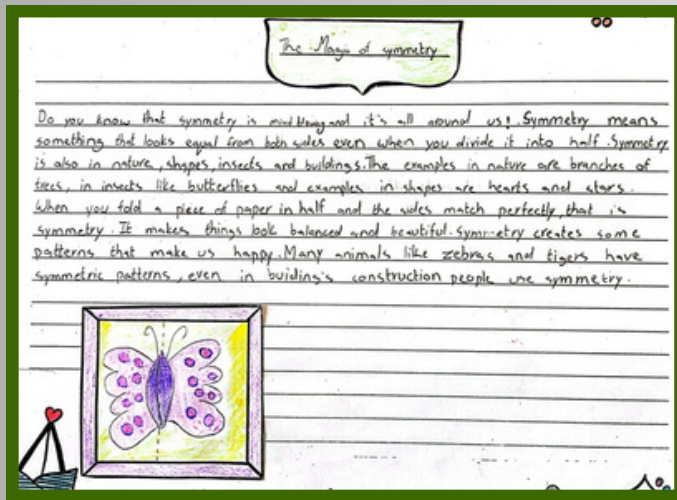 The Magic of symmetry
Do you know that symmetry is mind blowing and it's all around us! Symmetry means
something that looks equal from both sides even when you divide it into half. Symmetry
is also in nature, shapes, insects and buildings. The examples in nature are branches of
trees, in insects like butterflies and examples in shapes are hearts and stars.
When you fold a piece of paper in half and the sides match perfectly, that is
symmetry. It makes things look balanced and beautiful. Symmetry creates some
patterns that make us happy. Many animals like zebras and tigers have
symmetric patterns, even in buiding's construction people use symmetry.